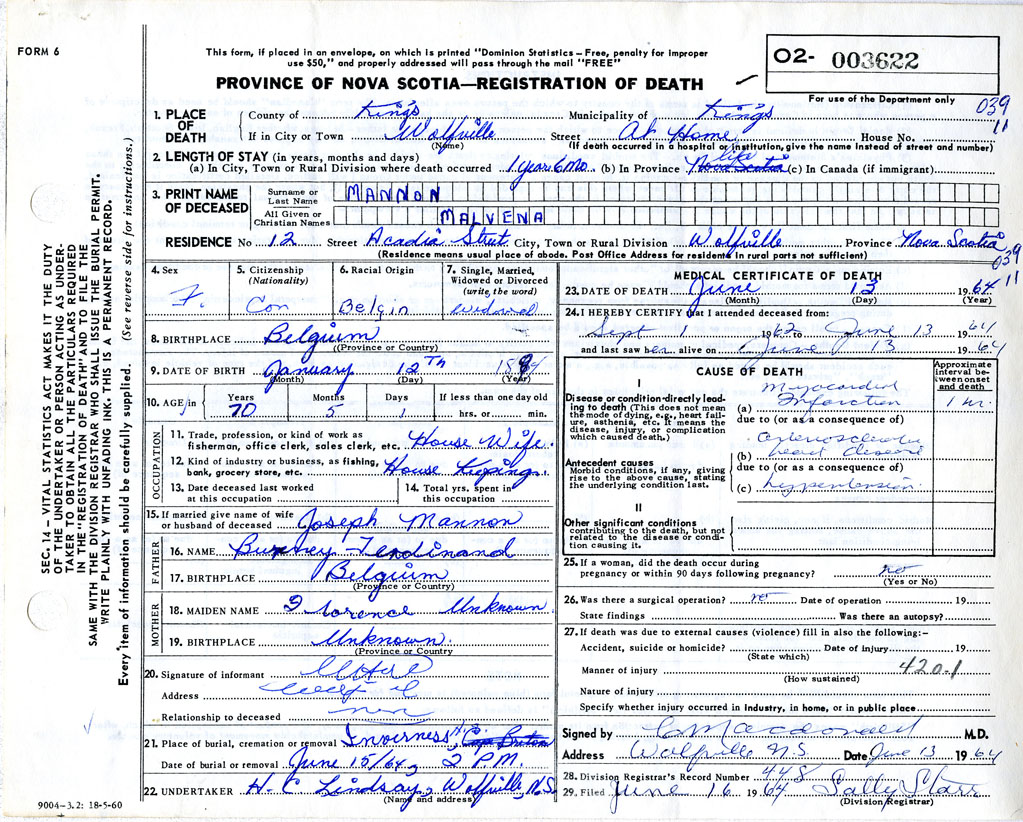 FORM 6
This form, if placed in an envelope, on which is printed "Dominion Statistics – Free, penalty for improper
use $50," and properly addressed will pass through the mail "FREE"
PROVINCE OF NOVA SCOTIA—REGISTRATION OF DEATH
O2- 003622
For use of the Department only
039
11
1. PLACE OF DEATH
County of Kings Municipality of Kings
If in City or Town Wolfville Street At Home House No.
(Name) (If death occurred in a hospital or institution, give the name instead of street and number)
2. LENGTH OF STAY (in years, months and days)
(a) In City, Town or Rural Division where death occurred 1 Year 6 Mo. (b) In Province life Nova Scotia (c) In Canada (if immigrant)
3. PRINT NAME OF DECEASED
Surname or Last Name MANNON
All Given or Christian Names MALVENA
RESIDENCE No 12 Street Acadia Street City, Town or Rural Division Wolfville Province Nova Scotia
(Residence means usual place of abode. Post Office Address for residents in rural parts not sufficient)
039
11
4. Sex F.
5. Citizenship (Nationality) Can
6. Racial Origin Belgin
7. Single, Married, Widowed or Divorced (write, the word) Widowed
8. BIRTHPLACE Belgium
(Province or Country)
9. DATE OF BIRTH January 12th 1894
(Month) (Day) (Year)
10. AGE in Years 70 Months 5 Days 1 If less than one day old hrs. or min.
OCCUPATION
11. Trade, profession, or kind of work as fisherman, office clerk, sales clerk, etc. House Wife.
12. Kind of industry or business, as fishing, bank, grocery store, etc. House Kiping.
13. Date deceased last worked at this occupation
14. Total yrs. spent in this occupation
15. If married give name of wife or husband of deceased Joseph Mannon
FATHER
16. NAME Ferdinand
17. BIRTHPLACE Belgium
(Province or Country)
MOTHER
18. MAIDEN NAME Florence Unknown
19. BIRTHPLACE Unknown.
(Province or Country
20. Signature of informant
Address
Relationship to deceased
21. Place of burial, cremation or removal Inverness Cape Breton
Date of burial or removal June 15/64, 2 P.M.
22. UNDERTAKER H. C Lindsay, Wolfville, N.S.
(Name and address)
9004–3.2: 18-5-60
SEC. 14 – VITAL STATISTICS ACT MAKES IT THE DUTY
OF THE UNDERTAKER OR PERSON ACTING AS UNDER-
TAKER TO OBTAIN ALL THE PARTICULARS REQUIRED
IN THE "REGISTRATION OF DEATH" AND TO FILE THE
SAME WITH THE DIVISION REGISTRAR WHO SHALL ISSUE THE BURIAL PERMIT.
WRITE PLAINLY WITH UNFADING INK. THIS IS A PERMANENT RECORD.
Every item of information should be carefully supplied. (See reverse side for instructions.)
MEDICAL CERTIFICATE OF DEATH
23. DATE OF DEATH June 13 1964
(Month) (Day) (Year)
24. I HEREBY CERTIFY that I attended deceased from:
Sept 1 1962 June 13 1964
and last saw her alive on June 13 1964
CAUSE OF DEATH
Approximate interval between onset and death
I
Disease or condition directly leading to death (This does not mean the mode of dying, e.g., heart failure, asthenia, etc. It means the disease, injury, or complication which caused death.)
(a) Myocardial Infarction 1 hr.
due to (or as a consequence of)
Antecedent causes
Morbid conditions, if any, giving rise to the above cause, stating the underlying condition last.
(b) arteriosclerotic heart disease
due to (or as a consequence of)
(c) hypertension
II
Other significant conditions
contributing to the death, but not related to the disease or condition causing it.
25. If a woman, did the death occur during pregnancy or within 90 days following pregnancy? no
(Yes or No)
26. Was there a surgical operation? no Date of operation 19
State findings Was there an autopsy?
27. If death was due to external causes (violence) fill in also the following:–
Accident, suicide or homicide? Date of injury 19
(State which)
Manner of injury 420.1
(How sustained)
Nature of injury
Specify whether injury occurred in industry, in home, or in public place
Signed by C Macdonald M.D.
Address Wolfville N.S. Date June 13 1964
28. Division Registrar's Record Number 448
29. Filed June 16 1964 Sally Starr
(Division Registrar)